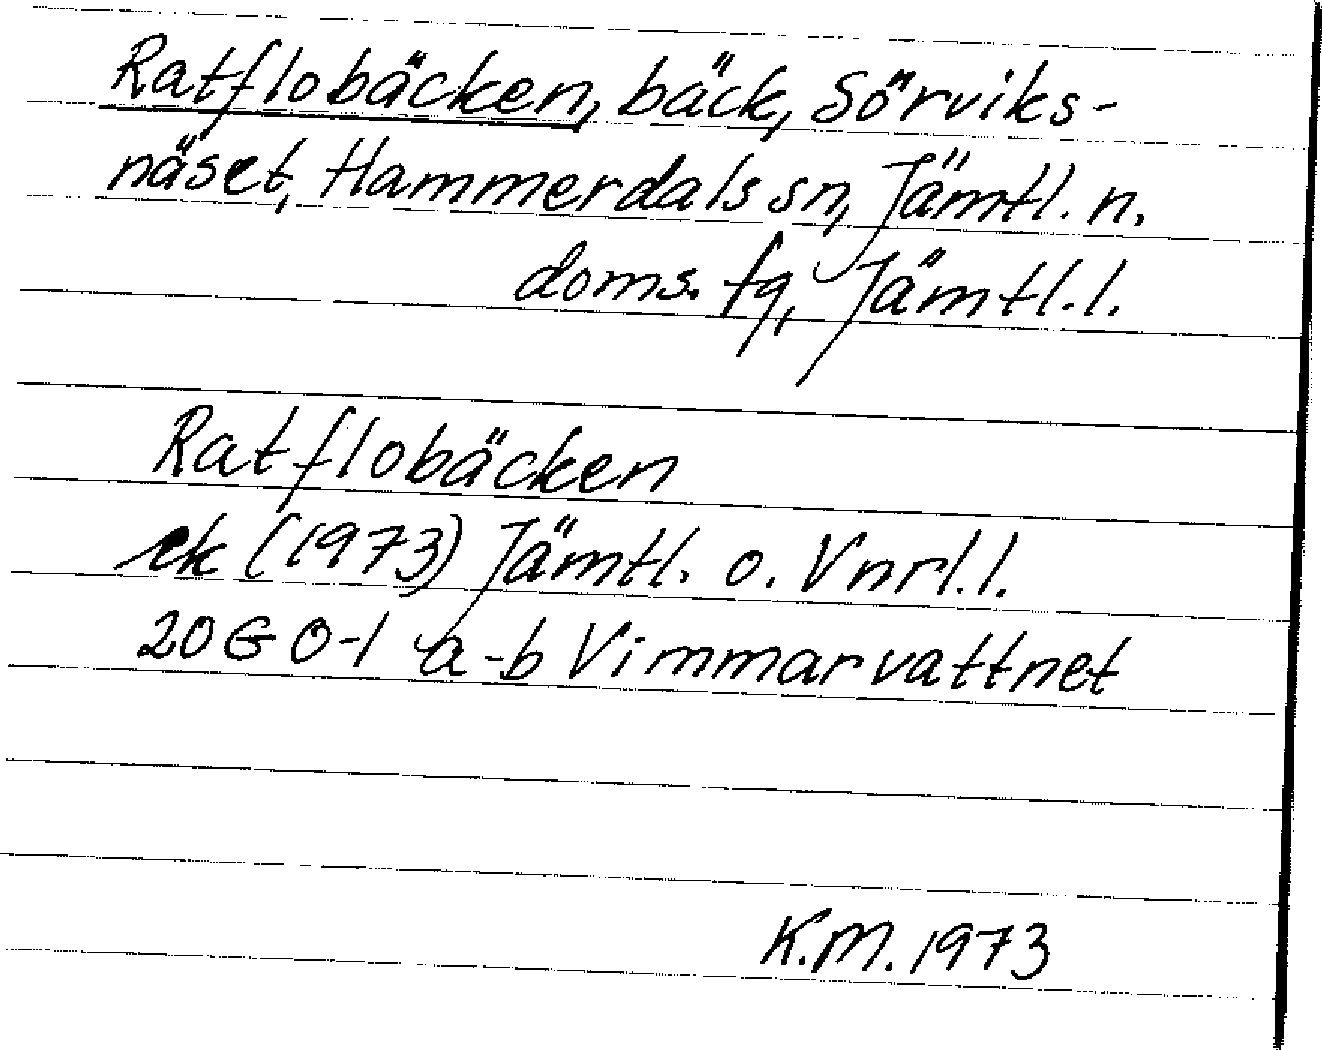 Ratflobäcken, bäck, Sörviks-
näset, Hammerdals sn, Jämtl. n.
doms. fq, Jämtl. l.
Ratflobäcken
ek (1973) Jämtl. o. Vnrl. l.
20 G 0-1 a-b Vimmarvattnet
K.M. 1973